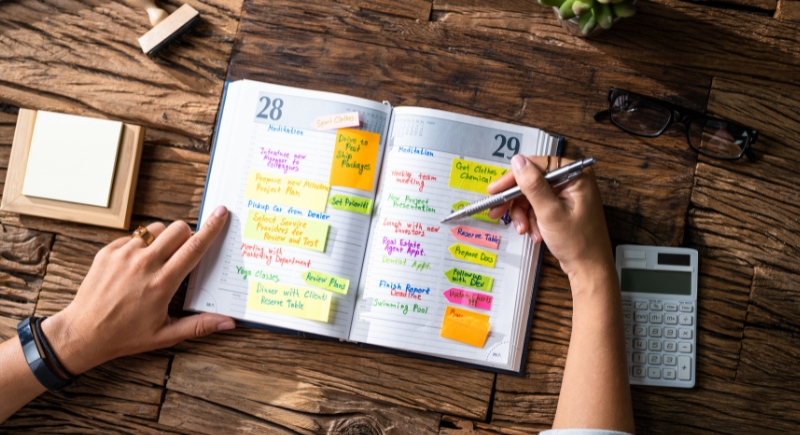 28
Sport Clothes
Meditation
Drive to
Post
Ship
Packages
Introduce new
Manager to
Colleagues
Prepare new Monthly
Project Plan
Set Priority
Pickup Car from Dealer
Select Service
Providers for
Review and Test
Meeting with
Marketing Department
Yoga Classes
Review Plans
Dinner with Clients
Reserve Table
29
Meditation
Get Clothes
Chemical
Weekly team
meeting
New Project
Presentation
Lunch with new
investors
Reserve Table
Real Estate
Agent Appt.
Prepare Docs
Dental Appt.
Followup
with Dev
Finish Report
Deadline
Swimming Pool